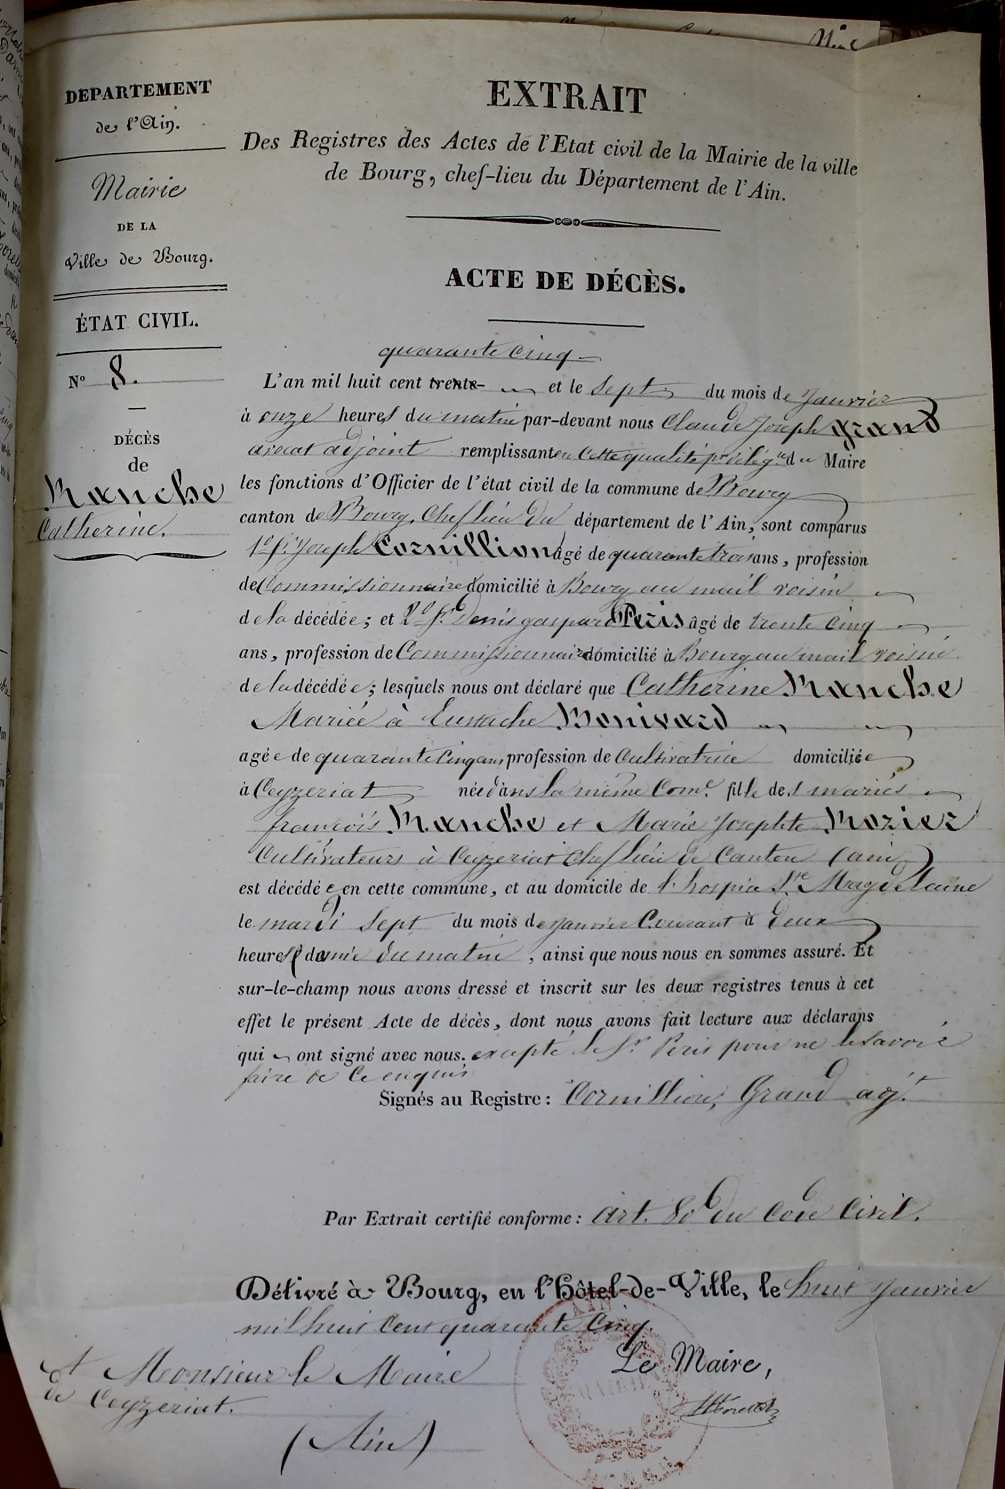 DEPARTEMENT
de l'Ain.
Mairie
DE LA
Ville de Bourg.
ÉTAT CIVIL.
N° 8.
DÉCÈS
de
Manche
Catherine.
EXTRAIT
Des Registres des Actes de l'Etat civil de la Mairie de la ville
de Bourg, chef-lieu du Département de l'Ain.
ACTE DE DÉCÈS.
quarante cinq
L'an mil huit cent trente et le sept du mois de janvier
à onze heures du matin par-devant nous Claude Joseph Grand
avocat adjoint remplissant en cette qualité pr délégon du Maire
les fonctions d'Officier de l'état civil de la commune de Bourg
canton de Bourg, Chef lieu du département de l'Ain, sont comparus
1° Sr Joseph Cornillion âgé de quarante trois ans, profession
de Commissionnaire domicilié à Bourg au mail voisin
de la décédée; et 2° Sr Denis gaspard Peris âgé de trente cinq
ans, profession de Commissionnaire domicilié à Bourg au mail voisin
de la décédée; lesquels nous ont déclaré que Catherine Manche
Mariée à Eustache Bonivard
agée de quarante cinq ans profession de Cultivatrice domiciliée
à Ceyzeriat née dans la même Come. fille des mariés
françois Manche et Marie Josephte Mozier
Cultivateurs à Ceyzeriat chef lieu de Canton (ain)
est décédée en cette commune, et au domicile de l'hospice Ste Magdelaine
le mardi sept du mois de janvier Courant à deux
heures & demie du matin, ainsi que nous nous en sommes assuré. Et
sur-le-champ nous avons dressé et inscrit sur les deux registres tenus à cet
effet le présent Acte de décès, dont nous avons fait lecture aux déclarans
qui ont signé avec nous. excepté le Sr Peris pour ne le savoir
faire de ce enquis
Signés au Registre: Cornillion, Grand adjt
Par Extrait certifié conforme: art. 80 du Code Civil.
Délivré à Bourg, en l'Hôtel-de-Ville, le huit janvier
mil huit cent quarante cinq.
Le Maire,
A Monsieur le Maire
de Ceyzeriat.
(Ain)